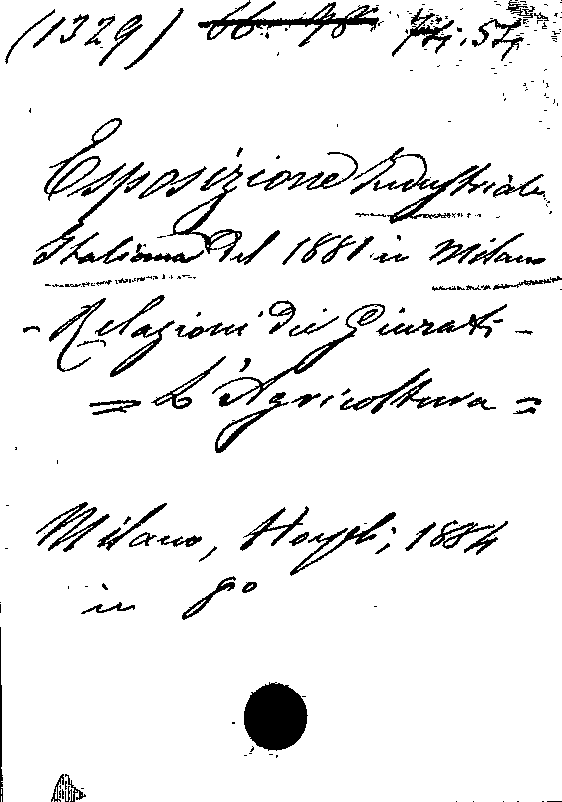 (1329)
Esposizione Industriale
Italiana del 1881 in Milano
- Relazioni dei Giurati -
= L'Agricoltura =
Milano, Hoepli, 1884
in 8º